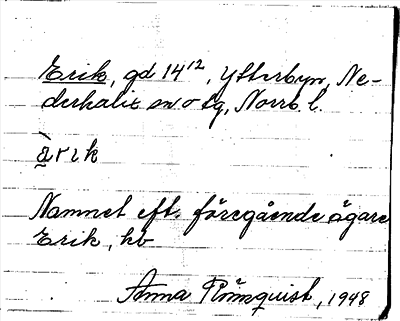 Erik, gd 14¹², Ytterbyn, Ne-
derkalix sn o tg, Norrb. l.
ä̀rik
Namnet eft. föregående ägare
Erik, hb
Anna Rönnquist, 1948